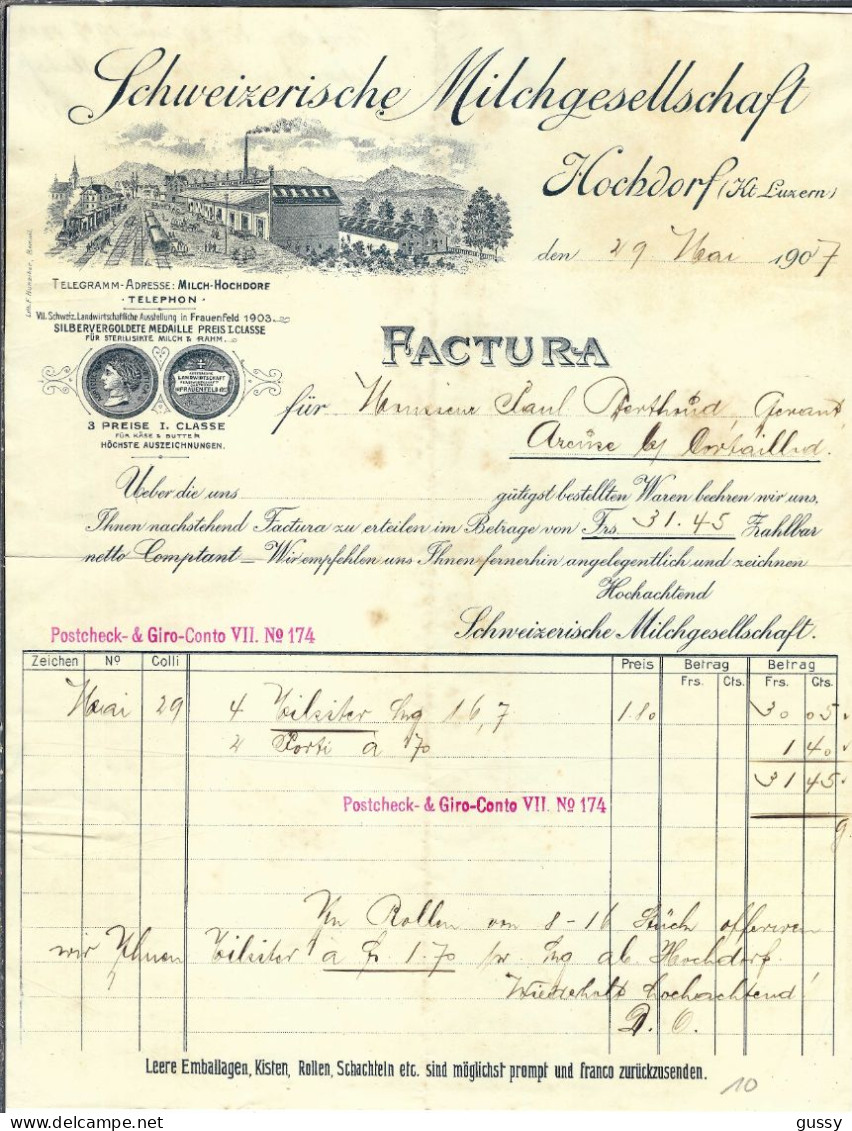 Schweizerische Milchgesellschaft
Hochdorf (Kt. Luzern)
den 29 Mai 1907
TELEGRAMM-ADRESSE: MILCH-HOCHDORF
· TELEPHON ·
VII. Schweiz. Landwirtschaftliche Ausstellung in Frauenfeld 1903.
SILBERVERGOLDETE MEDAILLE PREIS I. CLASSE
FÜR STERILISIRTE MILCH & RAHM.
FACTURA
3 PREISE I. CLASSE
FÜR KÄSE & BUTTER
HÖCHSTE AUSZEICHNUNGEN.
für Monsieur Paul Berthoud, Gerant,
Areuse b/ Cortaillod.
Ueber die uns gütigst bestellten Waren beehren wir uns,
Ihnen nachstehend Factura zu erteilen im Betrage von Frs. 31.45 Zahlbar
netto Comptant _ Wir empfehlen uns Ihnen fernerhin angelegentlich und zeichnen
Hochachtend
Schweizerische Milchgesellschaft.
Postcheck- & Giro-Conto VII. No 174
Zeichen No Colli Preis Betrag Betrag
Frs. Cts. Frs. Cts.
Mai 29 4 Tilsiter Kg 16,7 1.80 30 05
2 Porti à 70 1 40
31 45
Postcheck- & Giro-Conto VII. No 174
In Rollen von 8-16 Stück offeriren
wir Ihnen Tilsiter à fr 1.70 pr Kg ab Hochdorf.
Wiederholt hochachtend!
D. O.
Leere Emballagen, Kisten, Rollen, Schachteln etc. sind möglichst prompt und franco zurückzusenden.
10
gussy